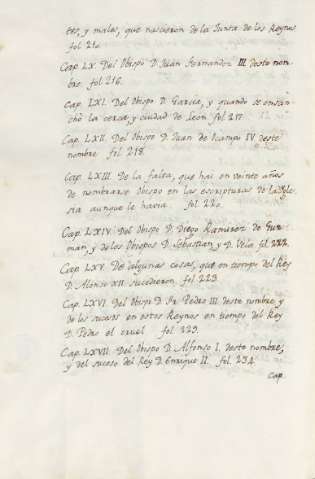 tes, y males, que nascieron de la Junta de los Reynos
fol 210.
Cap. LX. Del Obispo D. Juan Fernandez III deste nom-
bre. fol 216.
Cap. LXI. Del Obispo D. Garcia, y quando se ensan-
chò la cerca, y ciudad de Leon fol 217.
Cap. LXII. Del Obispo D. Juan de Ocampo IV deste
nombre fol. 218.
Cap. LXIII. De la falta, que hai en veinte años
de nombrarse Obispo en las escripturas de la Igle-
sia aunque le havia. fol 220.
Cap. LXIV. Del Obispo D. Diego Ramirez de Guz-
man, y de los Obispos D. Sebastian, y D. Vela fol. 222.
Cap. LXV. De algunas cosas, que en tiempo del Rey
D. Alonso XII sucedieron fol 223
Cap. LXVI. Del Obispo D. Fr. Pedro III. deste nombre, y
de los sucesos en estos Reynos en tiempo del Rey
D. Pedro el cruel fol. 225.
Cap. LXVII. Del Obispo D. Alfonso I. deste nombre,
y del suceso del Rey D. Enrique II. fol. 234.
Cap.